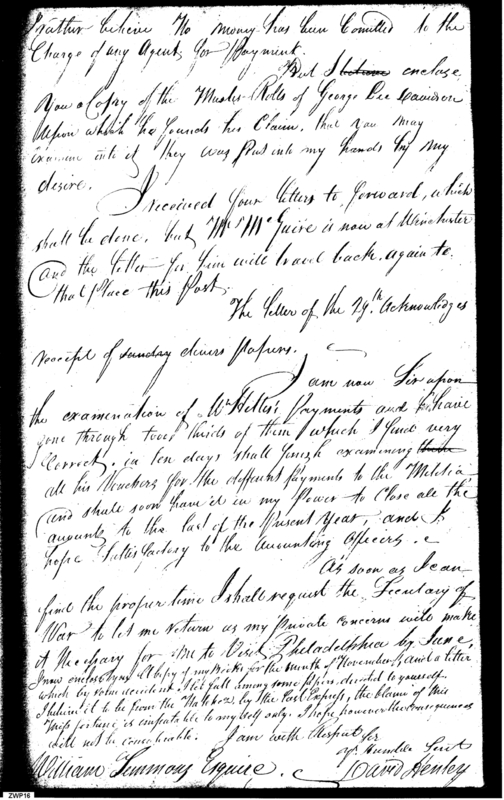 rather believe No money has been Comitted to the
Charge of any Agent, for Payment.
But I enclose
You a Copy of the Muster Rolls of George Lee Davidson
Upon which he founds his Claim, that you may
examine into it they was put into my hands by my
desire.
I received your letters to forward, which
shall be done, but Mr McGuire is now at Winchester
and the letter for him will travel back again to
that place this Post.
The letter of the 29th Acknowledges
receipt of sunday divers papers.
I am now Sir upon
the examination of Payments and have
gone through two thirds of them, which I find very
Correct, in ten days shall finish examining
all his Vouchers for the different Payments to the Militia
and shall soon have it in my Power to Close all the
amounts to the last of the Present Year, and I
hope Satisfactory to the accounting Officers.
As soon as I can
find the proper time I shall request the Secretary of
War to let me return as my Private Concerns will make
it Necessary for Me to Visit Philadelphia by June,
I now enclose you a Copy of my for the month of November, and a letter
which by some accident I let fall among some Papers, directed to yourself.
I believe it to be from the Natchez, by the last Express, the blame of this
Misfortune is imputable to myself only. I hope however the consequences
will not be considerable. I am with Respect Sir
Yr Humble Servt
William Simmons Esquire. David Henley
ZWP16